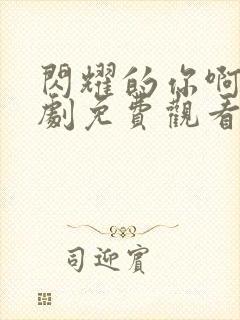 閃耀的你啊
劇免費觀看
司迎賓